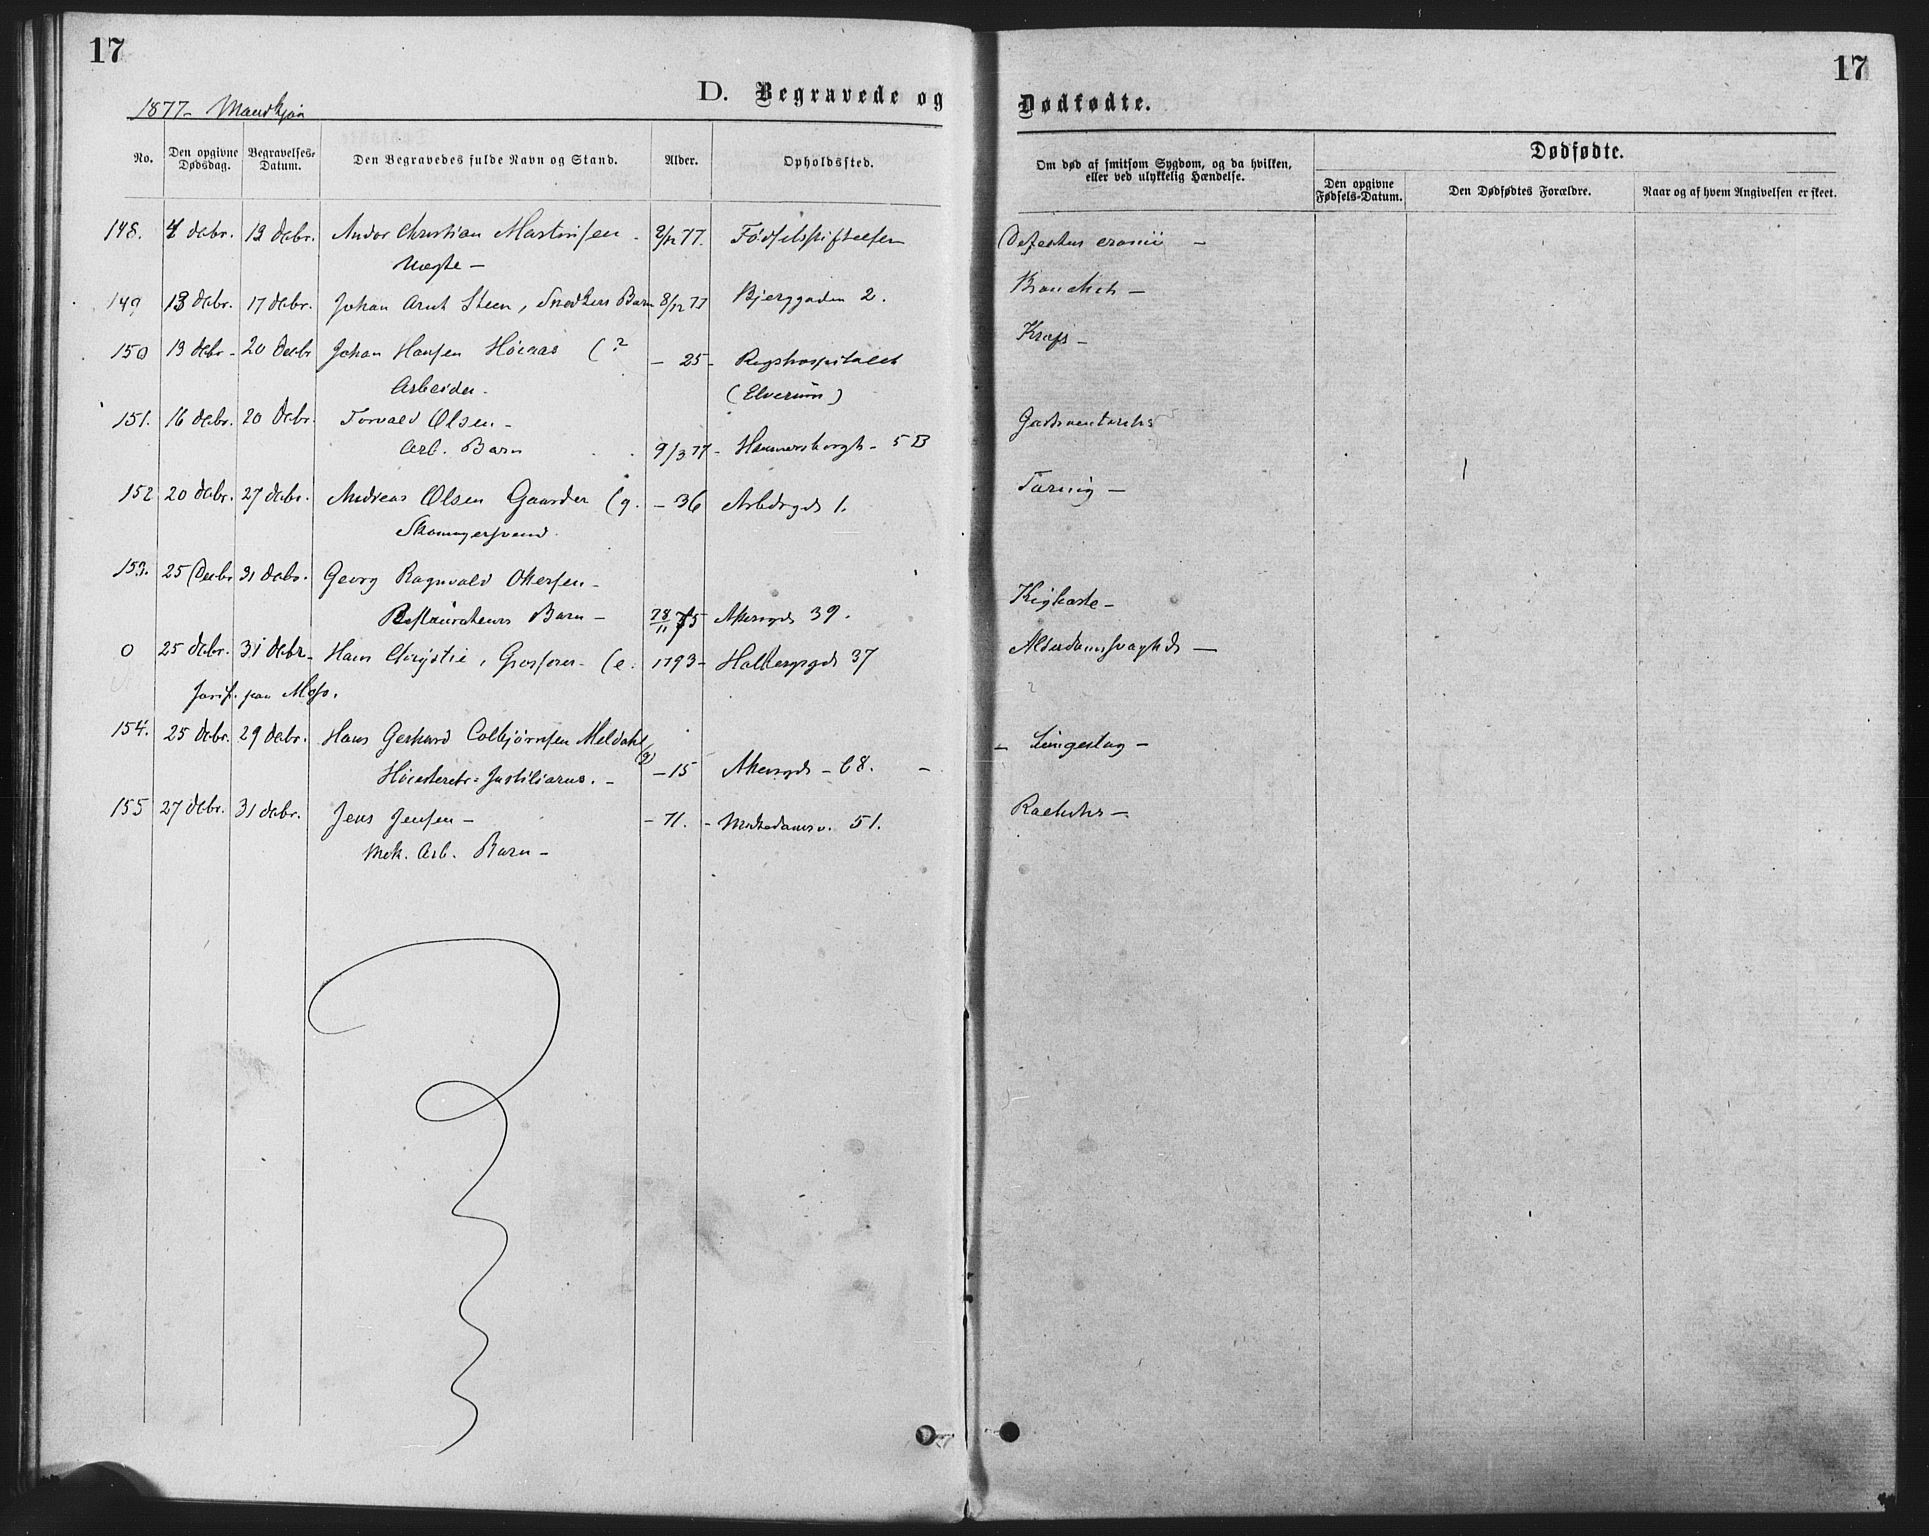 17
17
D. Begravede og Dødfødte.
1877 - Mandkjøn
No.
Den opgivne Dødsdag.
Begravelses-Datum.
Den Begravedes fulde Navn og Stand.
Alder.
Opholdssted.
Om død af smitsom Sygdom, og da hvilken, eller ved ulykkelig Hændelse.
Dødfødte.
Den opgivne Fødsels-Datum.
Den Dødfødtes Forældre.
Naar og af hvem Angivelsen er skeet.
148. 4 Debr. 13 Debr. Andor Christian Martinsen - 2/12 77. Fødselsstiftelsen Defectus cranii -
Uægte -
149 13 Debr. 17 Debr. Johan Arnt Steen, Snedkers Barn 8/12 77 Bjerggaden 2. Bronchit -
150 13 Debr - 20 Decbr Johan Hansen Höiaas (? - 25 - Rigshospitalet Kræft -
Arbeider. (Elverum)
151. 16 Debr. 20 Debr. Torvald Olsen -
Arb. Barn 9/3 77 - Hammersborgt - 5 B
152 20 Debr. 27 Debr. Andreas Olsen Gaarder (g. - 36 Arbdrgd. 1. Tæring -
Skomagersvend.
153. 25 Decbr 31 Debr. Georg Ragnvald Ottersen -
Restaurateurs Barn - 28/11 75 Akersgd. 39. Kighoste -
0 25 Debr. 31 Debr. Hans Chrystie, Grosserer - (e. 1793 - Holbergsgd. 37 Alderdomssvaghed -
Mos.
154. 25 Debr. 29 Debr. Hans Gerhard Colbjørnsen Meldahl (g)
Høiesteretts-Justitiarius. - - 15 Akersgd - 68. - Lungeslag -
155 27 Debr. 31 Debr. Jens Jensen - - 71. - 51. Rachitis -
Mek. Arb. Barn -